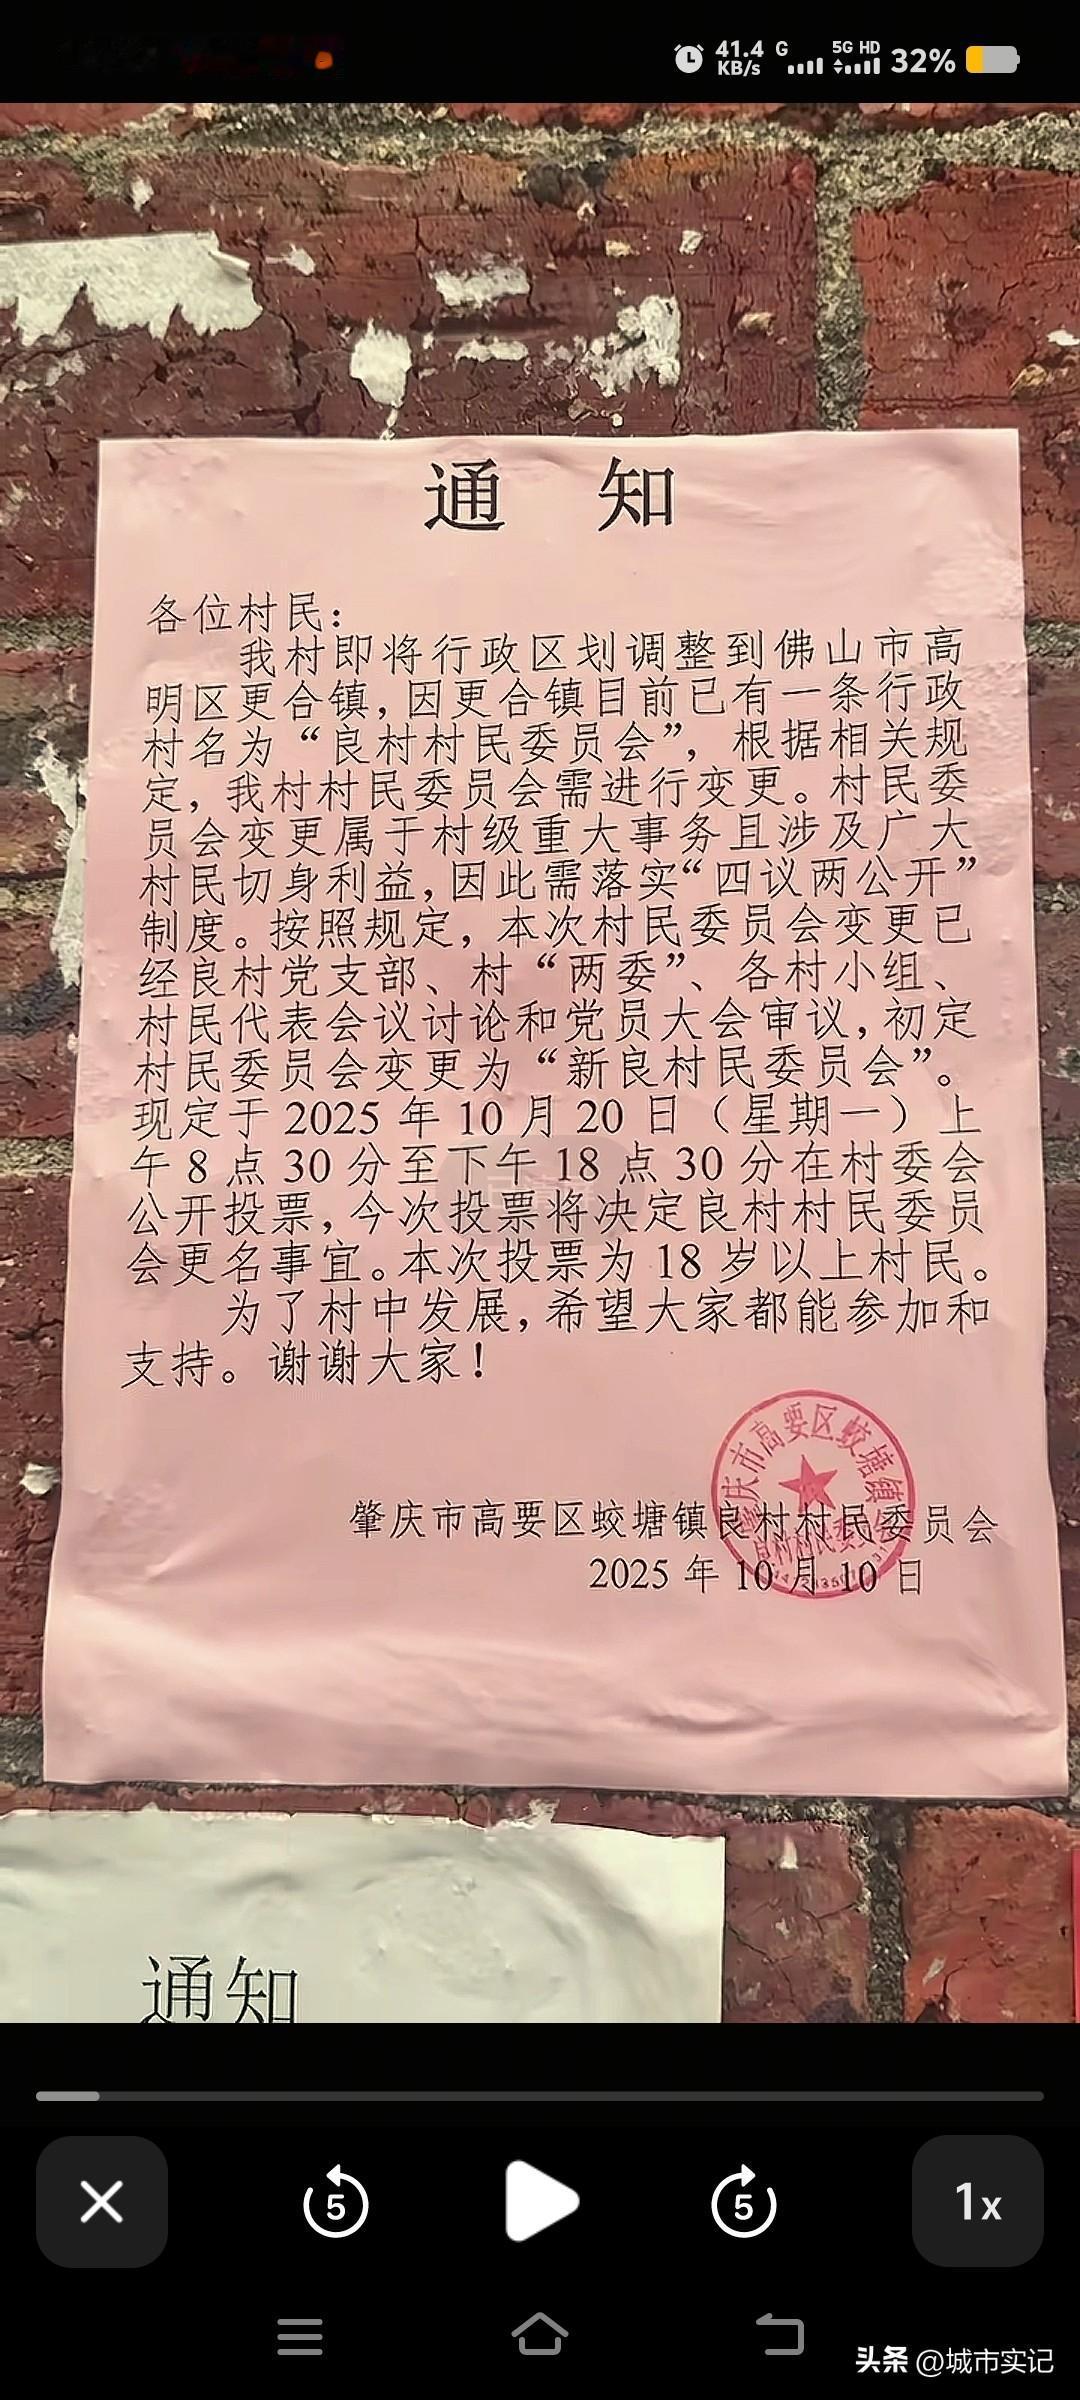 41.4 KB/s
G
5G HD
32%
通 知
各位村民：
我村即将行政区划调整到佛山市高
明区更合镇，因更合镇目前已有一条行政
村名为“良村村民委员会”，根据相关规
定，我村村民委员会需进行变更。村民委
员会变更属于村级重大事务且涉及广大
村民切身利益，因此需落实“四议两公开”
制度。按照规定，本次村民委员会变更已
经良村党支部、村“两委”、各村小组、
村民代表会议讨论和党员大会审议，初定
村民委员会变更为“新良村民委员会”。
现定于 2025 年 10 月 20 日（星期一）上
午 8 点 30 分至下午 18 点 30 分在村委会
公开投票，今次投票将决定良村村民委员
会更名事宜。本次投票为 18 岁以上村民。
为了村中发展，希望大家都能参加和
支持。谢谢大家！
肇庆市高要区蛟塘镇良村村民委员会
2025 年 10 月 10 日
肇庆市高要区蛟塘镇
良村村民委员会
通知
5
5
1x
头条 @城市实记